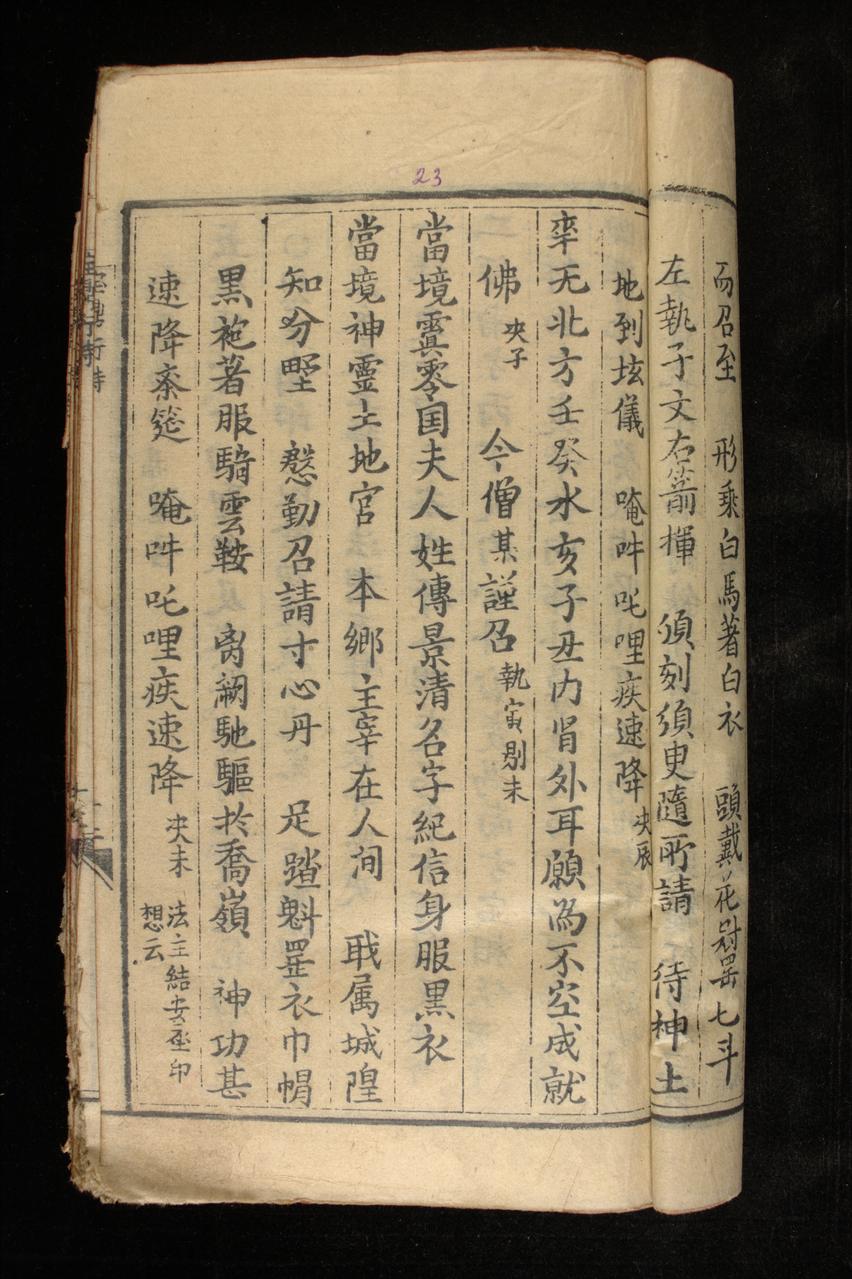 23
而召至 形乘白馬著白衣 頭戴花冠罡七斗
左執子文右箭揮 須刻須臾隨所請 待神土
地到坛儀 唵吽吒哩疾速降 夾辰
率无北方壬癸水亥子丑内肾外耳願為不空成就
佛 夾子 今僧某謹召 執寅剔未
當境霣零国夫人姓傳景清名字紀信身服黒衣
當境神霊土地官 本鄉主宰在人间 職属城隍
知分野 慇勤召請寸心丹 足踏魁罡衣巾帽
黒袍著服騎雲鞍 离嗣馳驅扵喬嶺 神功甚
速降斎筵 唵吽吒哩疾速降 夾未 法主結安座印
想云